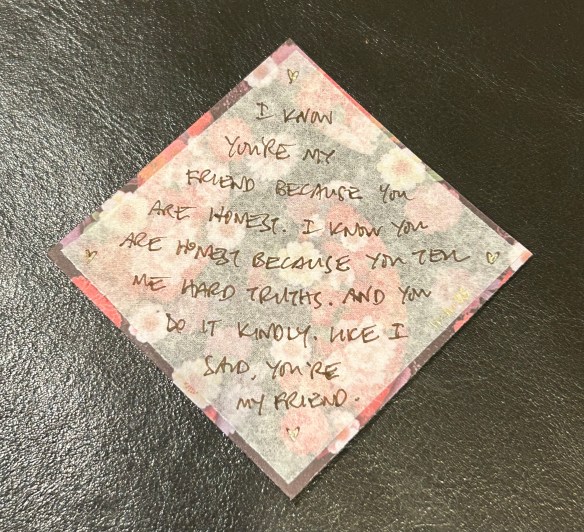 I KNOW
YOU'RE MY
FRIEND BECAUSE YOU
ARE HONEST. I KNOW YOU
ARE HONEST BECAUSE YOU TELL
ME HARD TRUTHS. AND YOU
DO IT KINDLY. LIKE I
SAID, YOU'RE
MY FRIEND.